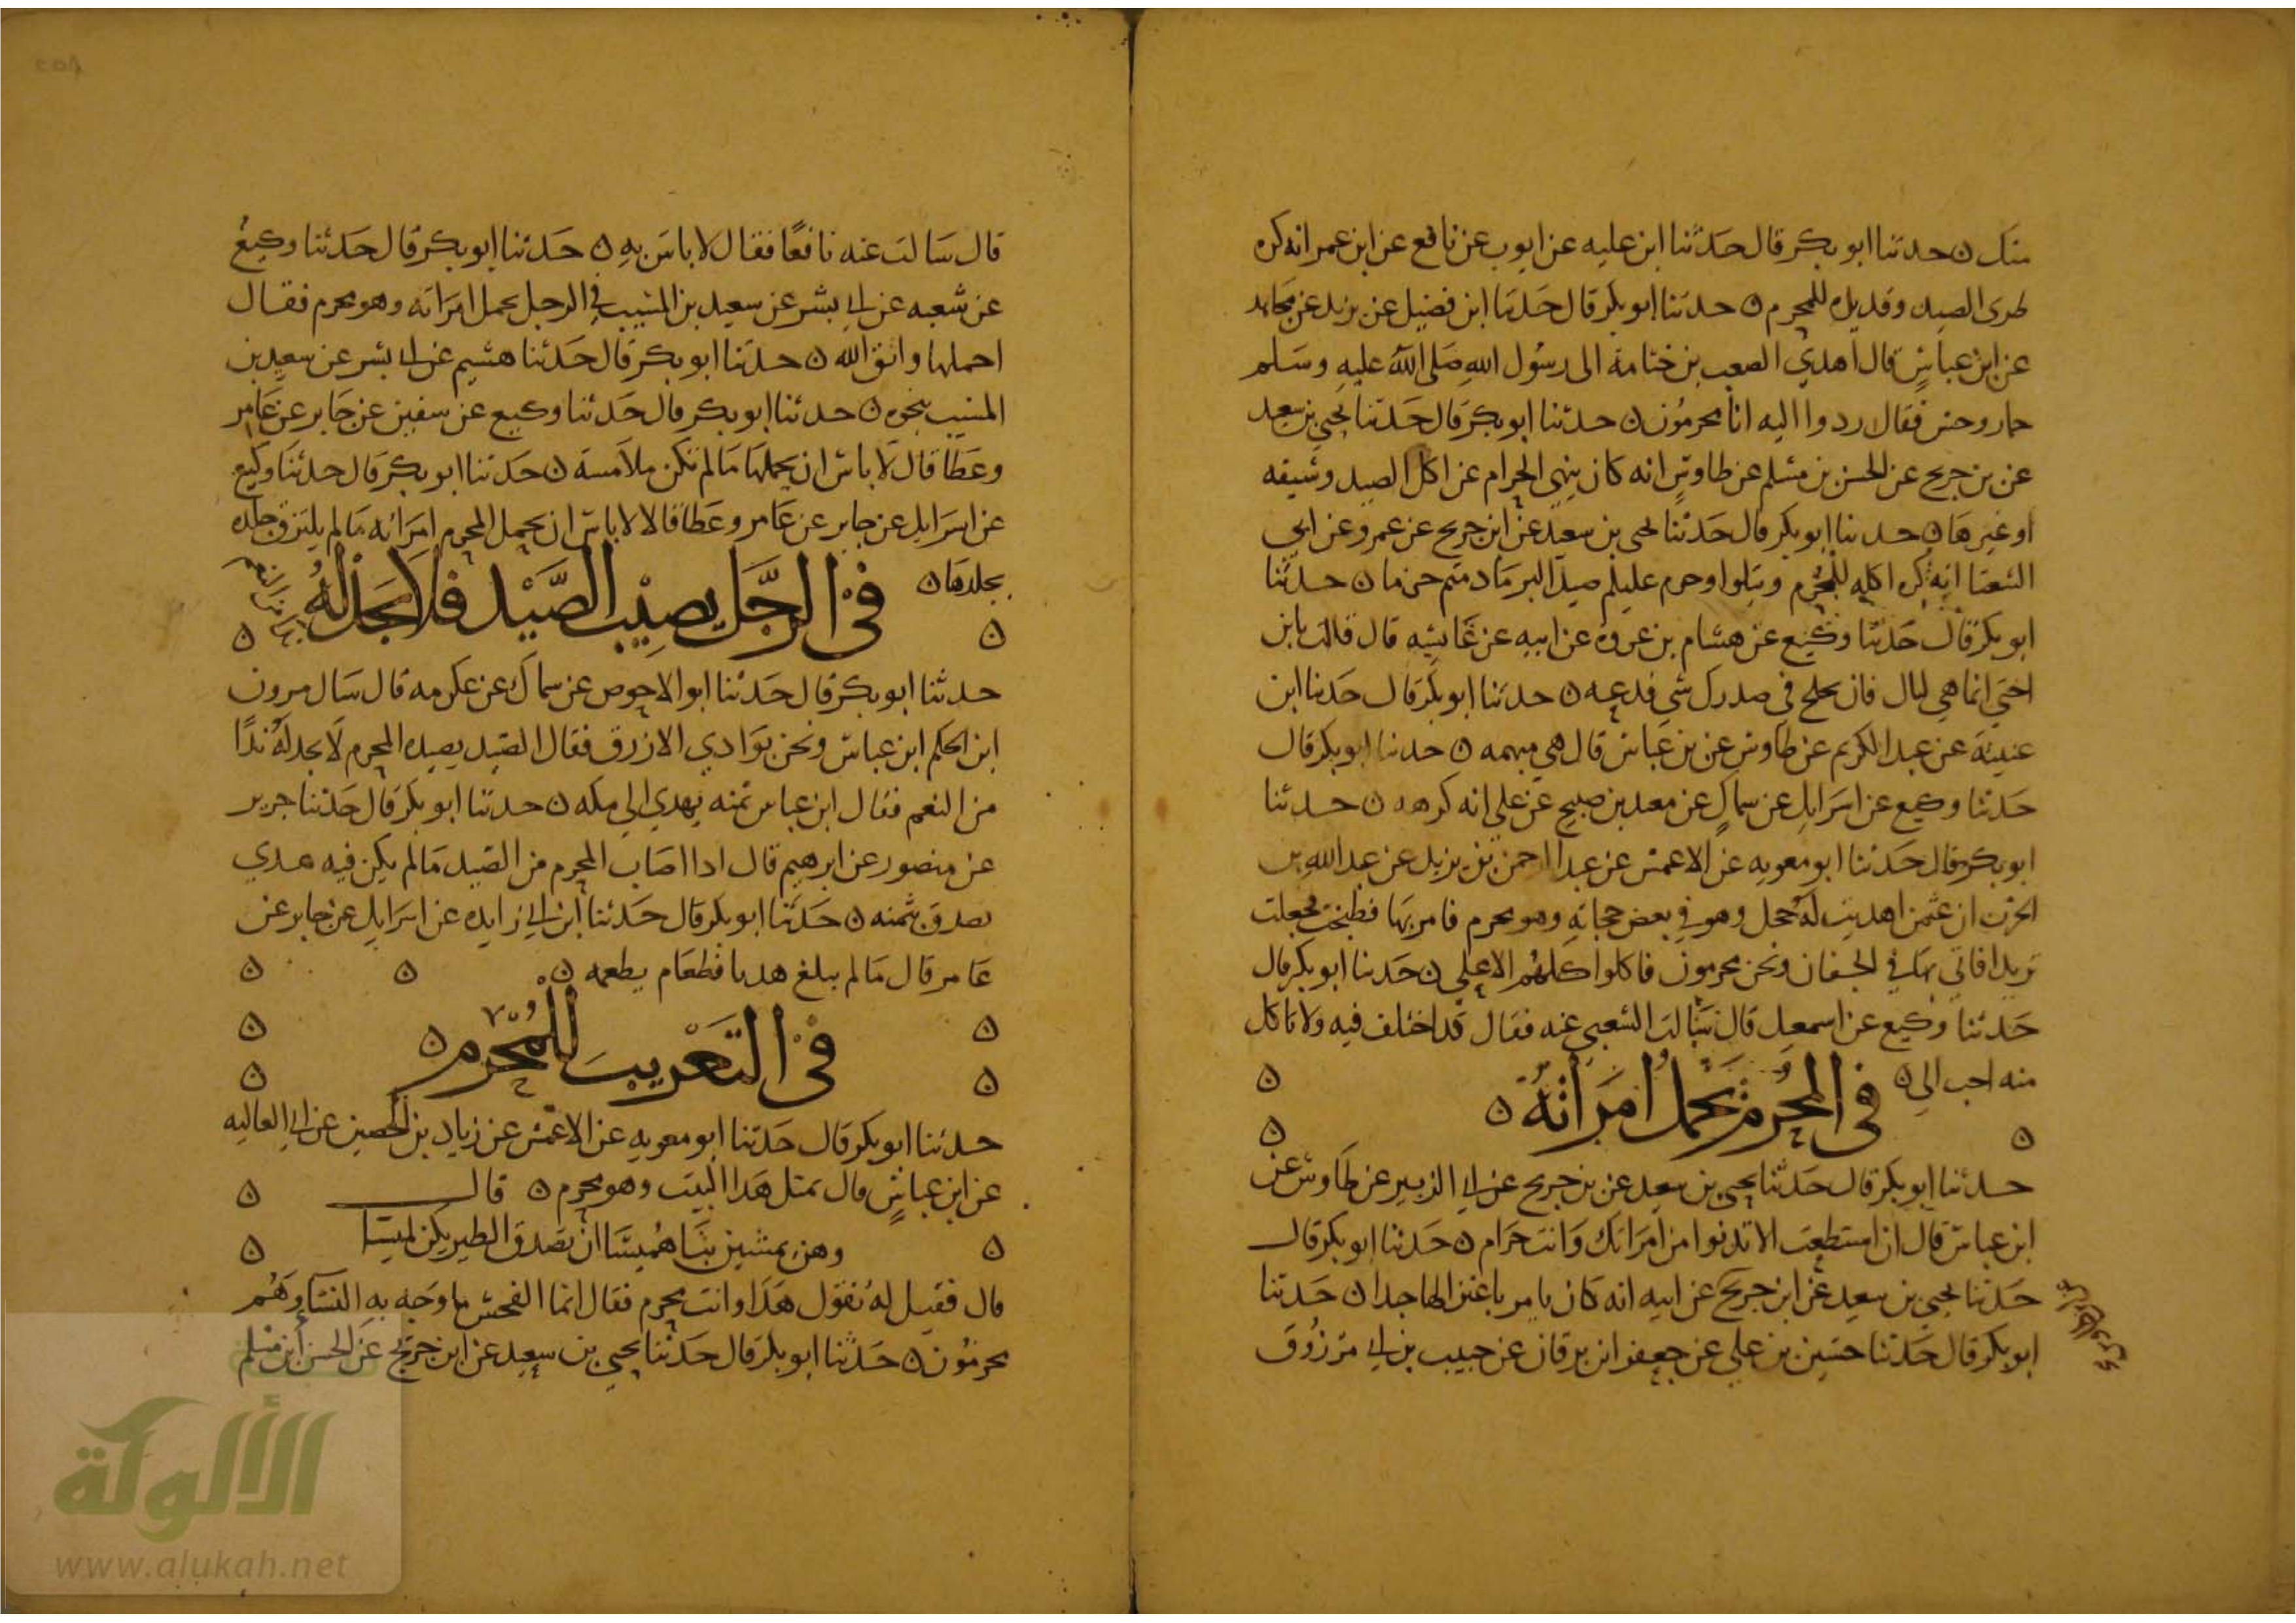 منك ن حدثنا ابو بكر قال حدثنا ابن عليه عن ايوب عن نافع عن ابن عمر انه كره
طرى الصيد وقديده للمحرم ن حدثنا ابو بكر قال حدثنا ابن فضيل عن يزيد عن مجاهد
عن ابن عباس قال اهدي الصعب بن ختامة الى رسول الله صلى الله عليه وسلم
حمار وحش فقال ردوا اليه انا محرمون ن حدثنا ابو بكر قال حدثنا يحيى بن سعيد
عن بن جريج عن الحسن بن مسلم عن طاوس انه كان ينهي الحرام عن اكل الصيد وشيقه
او غيرها ن حدثنا ابو بكر قال حدثنا يحيى بن سعيد عن ابن جريج عن عمرو عن ابي
الشعثا انه كره اكله للمحرم ويتلوا وحرم عليكم صيد البر مادمتم حرما ن حدثنا
ابو بكر قال حدثنا وكيع عن هشام بن عروة عن ابيه عن عائشه قال قالت يا بن
اختي انما هي ليال فان تحلج في صدرك شي فدعه ن حدثنا ابو بكر قال حدثنا ابن
عيينة عن عبد الكريم عن طاوس عن بن عباس قال هي مبهمه ن حدثنا ابو بكر قال
حدثنا وكيع عن اسرايل عن سماك عن معبد بن صبيح عن علي انه كرهه ن حدثنا
ابو بكر قال حدثنا ابو معويه عن الاعمش عن عبد الرحمن بن يزيد عن عبد الله بن
الحرث ان عثمن اهديت له حجل وهو في بعض حجاته وهو محرم فامر بها فطبخت فجعلت
ثريدا فاتي بها في الجفان ونحن محرمون فاكلوا كلهم الا علي ن حدثنا ابو بكر قال
حدثنا وكيع عن اسمعيل قال سالت الشعبي عنه فقال قد اختلف فيه ولا تاكل
منه احب الي ن في المحرم يحمل امراته ن
حدثنا ابو بكر قال حدثنا يحيى بن سعيد عن بن جريج عن ابي الزبير عن طاوس عن
ابن عباس قال ان استطعت الا تدنوا من امراتك وانت حرام ن حدثنا ابو بكر قال
حدثنا يحيى بن سعيد عن ابن جريج عن ابيه انه كان يامر باعتزالها جدا ن حدثنا
ابو بكر قال حدثنا حسين بن علي عن جعفر ابن برقان عن حبيب بن ابي مرزوق
قال سالت عنه نافعا فقال لا باس به ن حدثنا ابو بكر قال حدثنا وكيع
عن شعبه عن ابي بشر عن سعيد بن المسيب في الرجل يحمل امراته وهو محرم فقال
احملها واتق الله ن حدثنا ابو بكر قال حدثنا هشيم عن ابي بشر عن سعيد بن
المسيب بنحوه ن حدثنا ابو بكر قال حدثنا وكيع عن سفين عن جابر عن عامر
وعطا قال لا باس ان يحملها ما لم تكن ملامسة ن حدثنا ابو بكر قال حدثنا وكيع
عن اسرايل عن جابر عن عامر وعطا قالا لا باس ان يحمل المحرم امراته ما لم يلتزق جلده
بجلدها ن في الرجل يصيب الصيد فلا يجد له ندا من النعم
حدثنا ابو بكر قال حدثنا ابو الاحوص عن سماك عن عكرمه قال سال مرون
ابن الحكم ابن عباس ونحن بوادي الازرق فقال الصيد يصيده المحرم لا يجد له ندا
من النعم فقال ابن عباس ثمنه يهدي الى مكه ن حدثنا ابو بكر قال حدثنا جرير
عن منصور عن ابرهيم قال اذا اصاب المحرم من الصيد ما لم يكن فيه هدي
تصدق بثمنه ن حدثنا ابو بكر قال حدثنا ابن ابي زايده عن اسرايل عن جابر عن
عامر قال ما لم يبلغ هديا فطعام يطعمه ن
في التعريب للمحرم ن
حدثنا ابو بكر قال حدثنا ابو معويه عن الاعمش عن زياد بن الحصين عن ابي العاليه
عن ابن عباس قال تمثل هذا البيت وهو محرم ن قال
وهن يمشين بنا هميسا ان تصدق الطير
قال فقيل له تقول هذا وانت محرم فقال انما الفحش ما وجه به النسا وهم
محرمون ن حدثنا ابو بكر قال حدثنا يحيى بن سعيد عن ابن جريج عن الحسن ابن مسلم
الألوكة
www.alukah.net